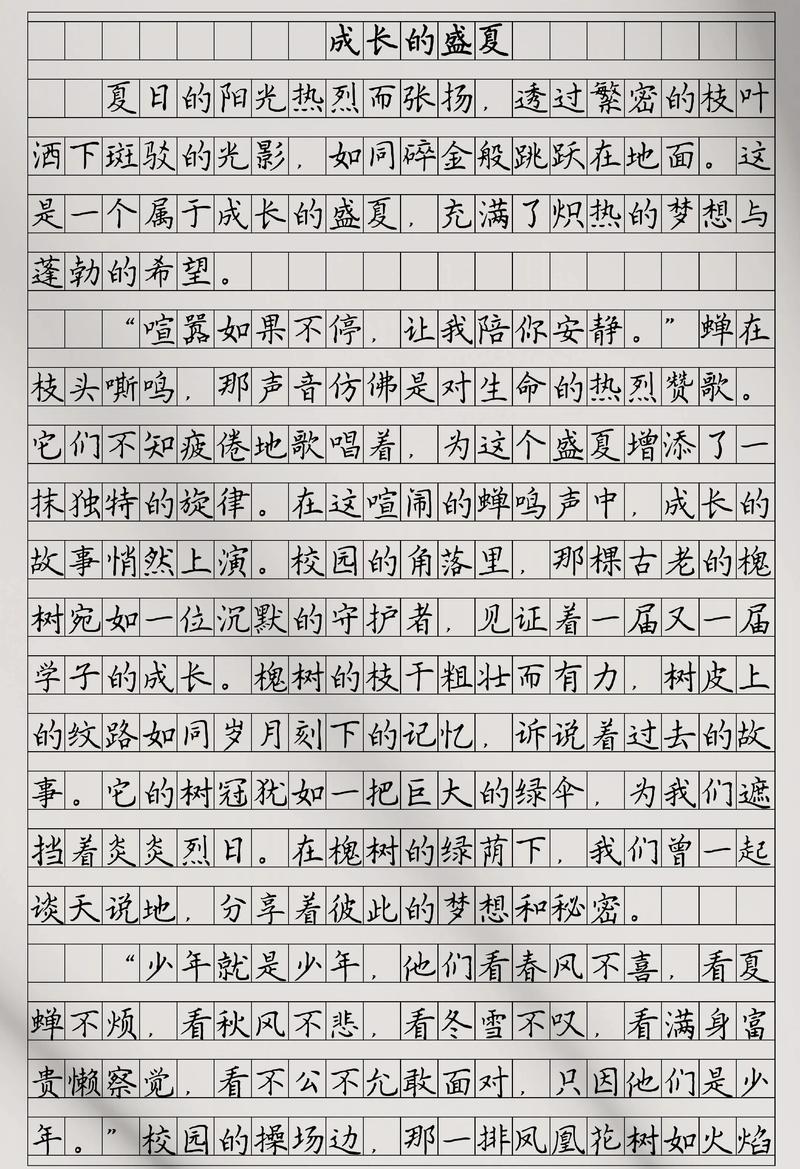 成长的盛夏
夏日的阳光热烈而张扬，透过繁密的枝叶
洒下斑驳的光影，如同碎金般跳跃在地面。这
是一个属于成长的盛夏，充满了炽热的梦想与
蓬勃的希望。
“喧嚣如果不停，让我陪你安静。”蝉在
枝头嘶鸣，那声音仿佛是对生命的热烈赞歌。
它们不知疲倦地歌唱着，为这个盛夏增添了一
抹独特的旋律。在这喧闹的蝉鸣声中，成长的
故事悄然上演。校园的角落里，那棵古老的槐
树宛如一位沉默的守护者，见证着一届又一届
学子的成长。槐树的枝干粗壮而有力，树皮上
的纹路如同岁月刻下的记忆，诉说着过去的故
事。它的树冠犹如一把巨大的绿伞，为我们遮
挡着炎炎烈日。在槐树的绿荫下，我们曾一起
谈天说地，分享着彼此的梦想和秘密。
“少年就是少年，他们看春风不喜，看夏
蝉不烦，看秋风不悲，看冬雪不叹，看满身富
贵懒察觉，看不公不允敢面对，只因他们是少
年。”校园的操场边，那一排凤凰花树如火焰